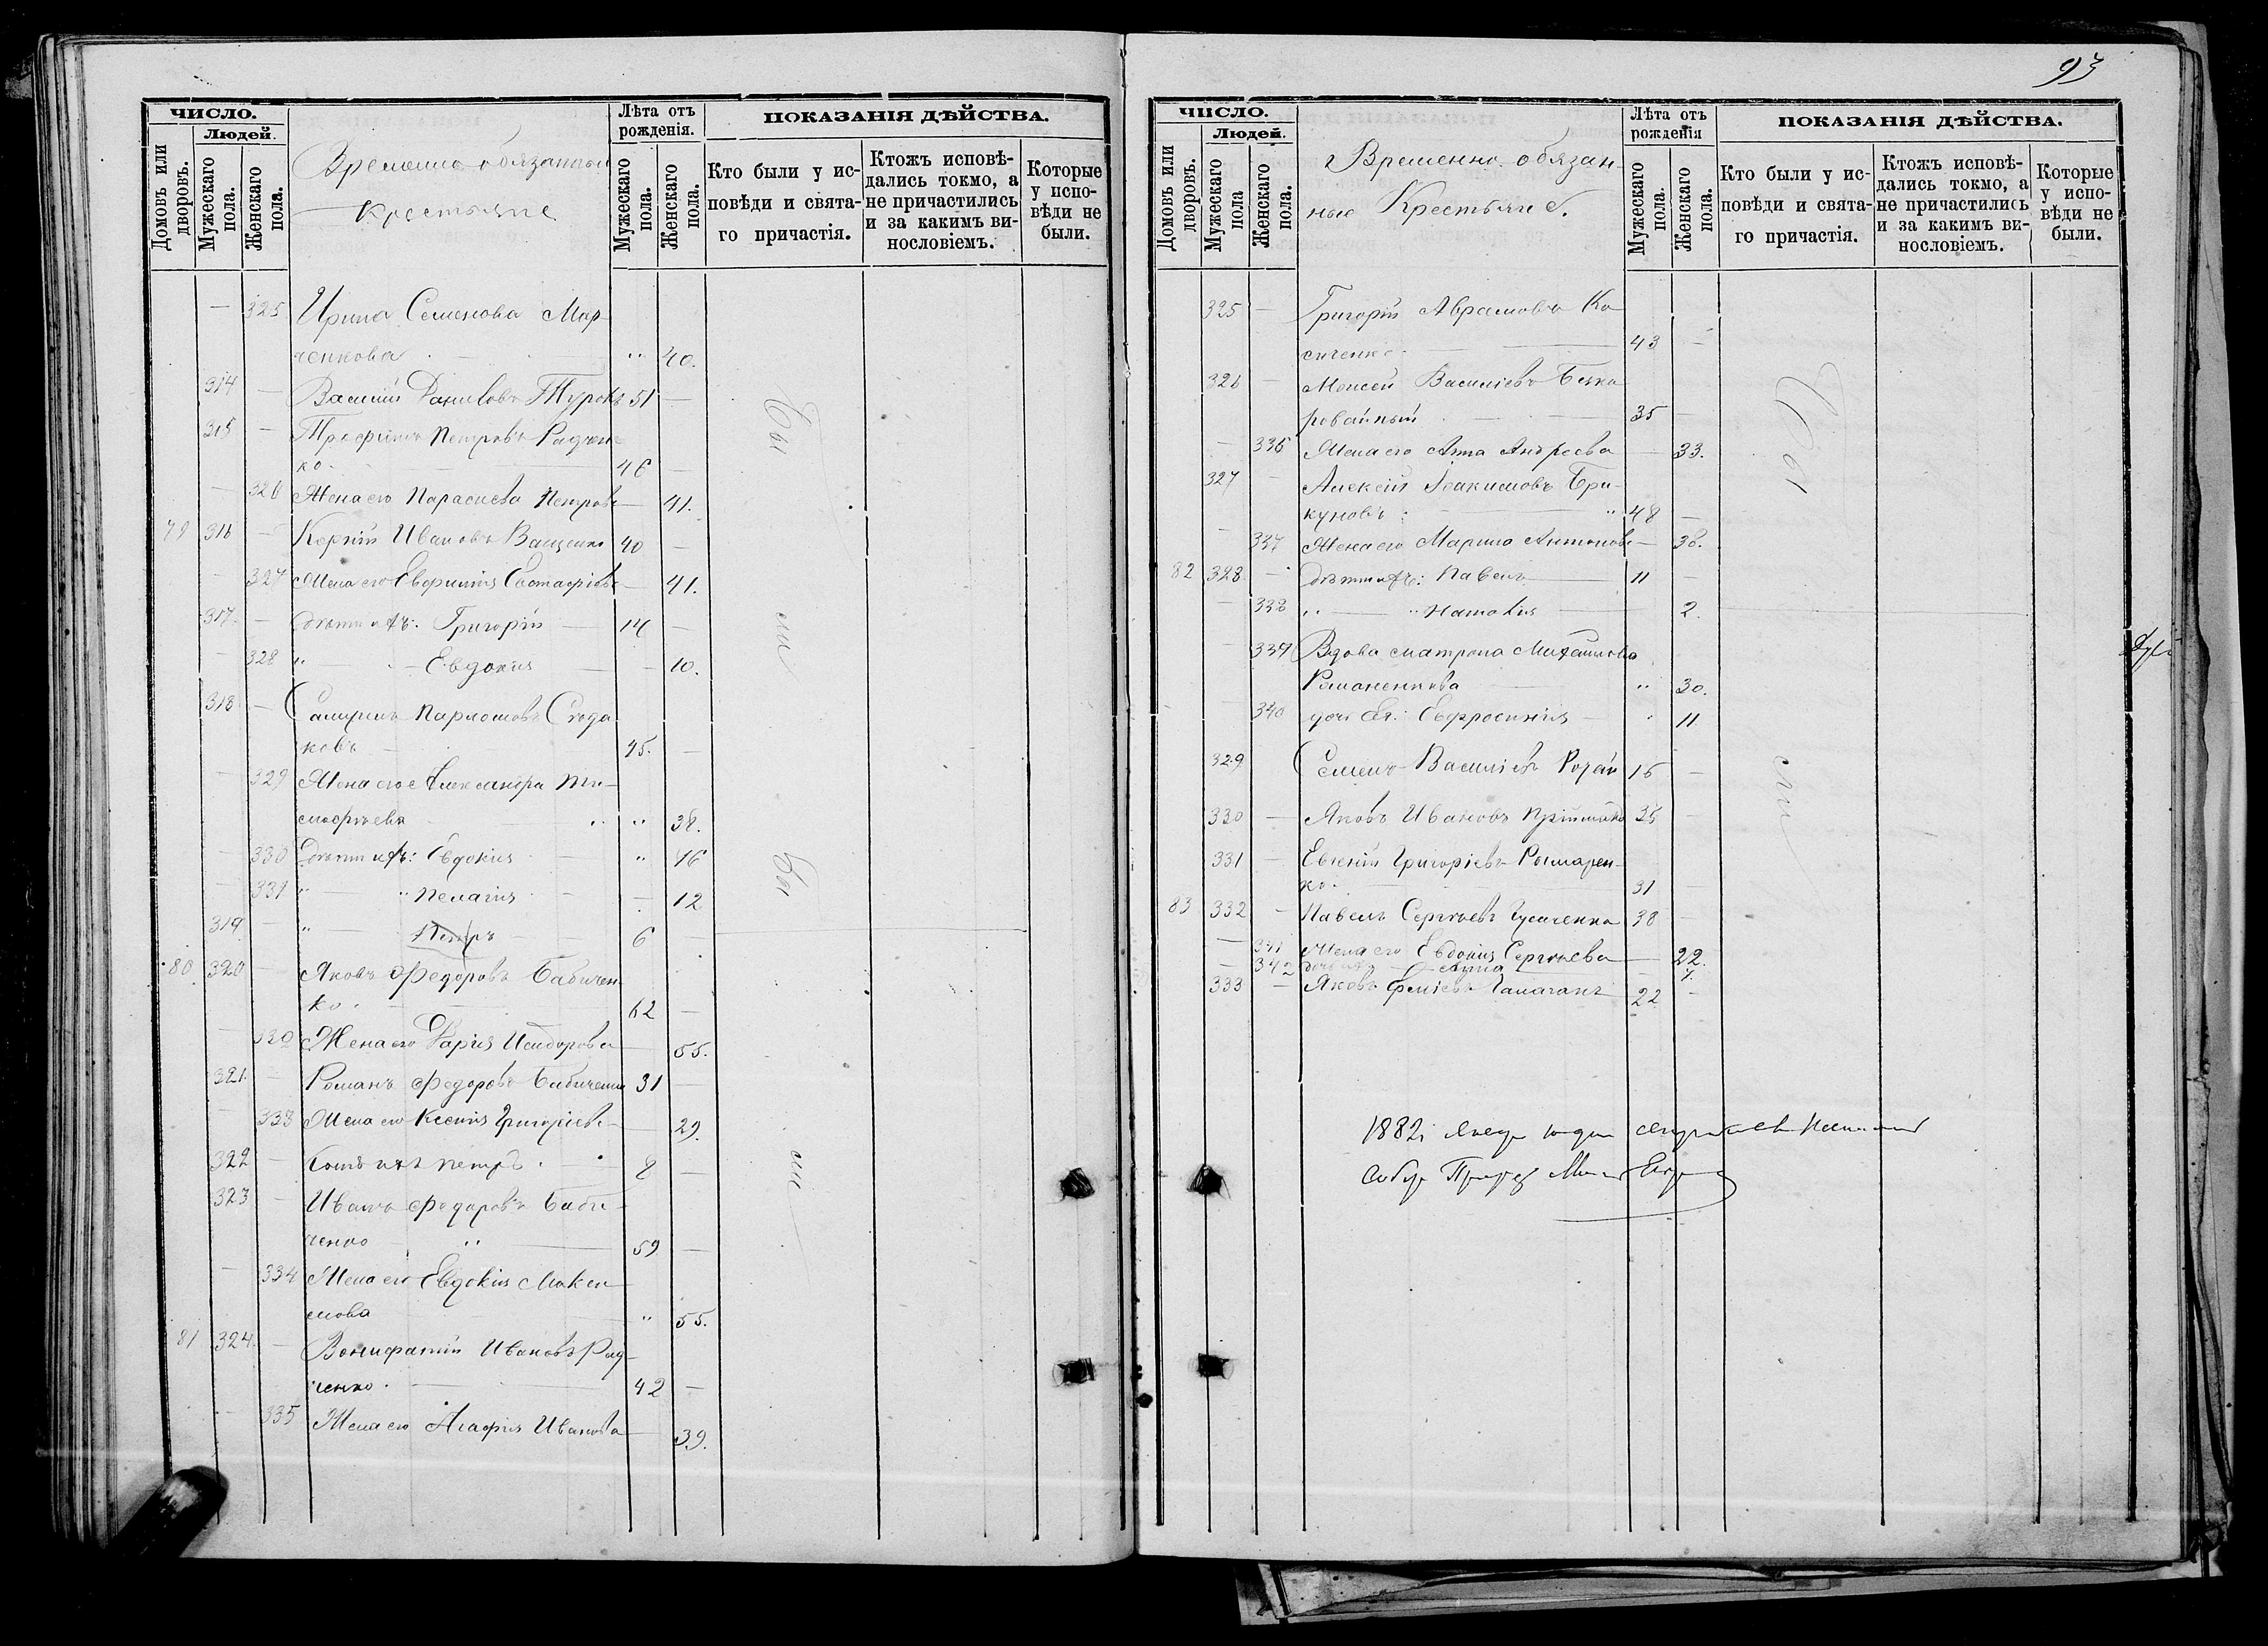 93
ЧИСЛО.
Людей.
Домовъ или дворовъ.
Мужескаго пола.
Женскаго пола.
Временно обязанные
Крестьяне
Лѣта отъ рожденія.
Мужескаго пола.
Женскаго пола.
ПОКАЗАНІЯ ДѢЙСТВА.
Кто были у исповѣди и святаго причастія.
Ктожъ исповѣдались токмо, а не причастились и за какимъ винословіемъ.
Которые у исповѣди не были.
— 325 Ирина Семенова Мар-
ченкова „ 40.
314 — Василій Даниловъ Турокъ 51 —
315 — Трофимъ Петровъ Радчен-
ко. 46 —
— 326 Жена его Параскева Петрова — 41.
79 316 — Корній Ивановъ Ващенко 40 —
— 327 Жена его Евфимія Евстафіева — 41.
317 — Дѣти ихъ: Григорій 14 —
— 328 „ — Евдокія — 10.
318 — Самуилъ Парѳеновъ
ковъ 45. —
— 329 Жена его Александра Ти-
моѳеева „ 38.
— 330 Дѣти ихъ: Евдокія „ 16
— 331 „ — „ Пелагія — 12
319 — „ — Петръ 6 —
80 320 — Яковъ Федоровъ Бабичен-
ко. 62 —
— 332 Жена его Дарія Исидорова — 55.
321 — Романъ Федоровъ Бабиченко 31 —
— 333 Жена его Ксенія Григоріева — 29.
322 — Сынъ ихъ Петръ. 8 —
323 — Иванъ Федоровъ Баби-
ченко „ 59 —
— 334 Жена его Евдокія Макси-
мова „ 55.
81 324 — Вонифатій Ивановъ Рад-
ченко. 42 —
— 335 Жена его Агафія Иванова — 39.
Бы
ли
Бы
ли
ЧИСЛО.
Людей.
Домовъ или дворовъ.
Мужескаго пола
Женскаго пола.
Временно обязан-
ные Крестьяне.
Лѣта отъ рожденія
Мужескаго пола.
Женскаго пола.
ПОКАЗАНІЯ ДѢЙСТВА.
Кто были у исповѣди и святаго причастія.
Ктожъ исповѣдались токмо, а не причастились и за какимъ винословіемъ.
Которые у исповѣди не были.
325 — Григорій Аврамовъ Ко-
сиченко 43 —
326 — Моисей Василіевъ Безка-
ровайный 35 —
— 336 Жена его Анна Андреева — 33.
327 — Алексій Іоакимовъ Бри-
куновъ „ 48 —
— 337 Жена его Марина Антонова — 38.
82 328 — Дѣти ихъ: Павелъ 11 —
— 338 „ — „ Наталія 2.
— 339 Вдова Матрона Михаилова
Романенкова „ 30.
— 340 дочь ея: Евфросинія „ 11
329 Семенъ Василіевъ 15 —
330 — Яковъ Ивановъ 35 —
331 — Евгеній Григоріевъ Ромарен-
ко. 31 —
83 332 — Павелъ Сергѣевъ Гусаченко 38 —
— 341 Жена его Евдокія Сергѣева — 22.
— 342 дочь ихъ Анна —
333 — Яковъ 22 —
Бы
ли
1882